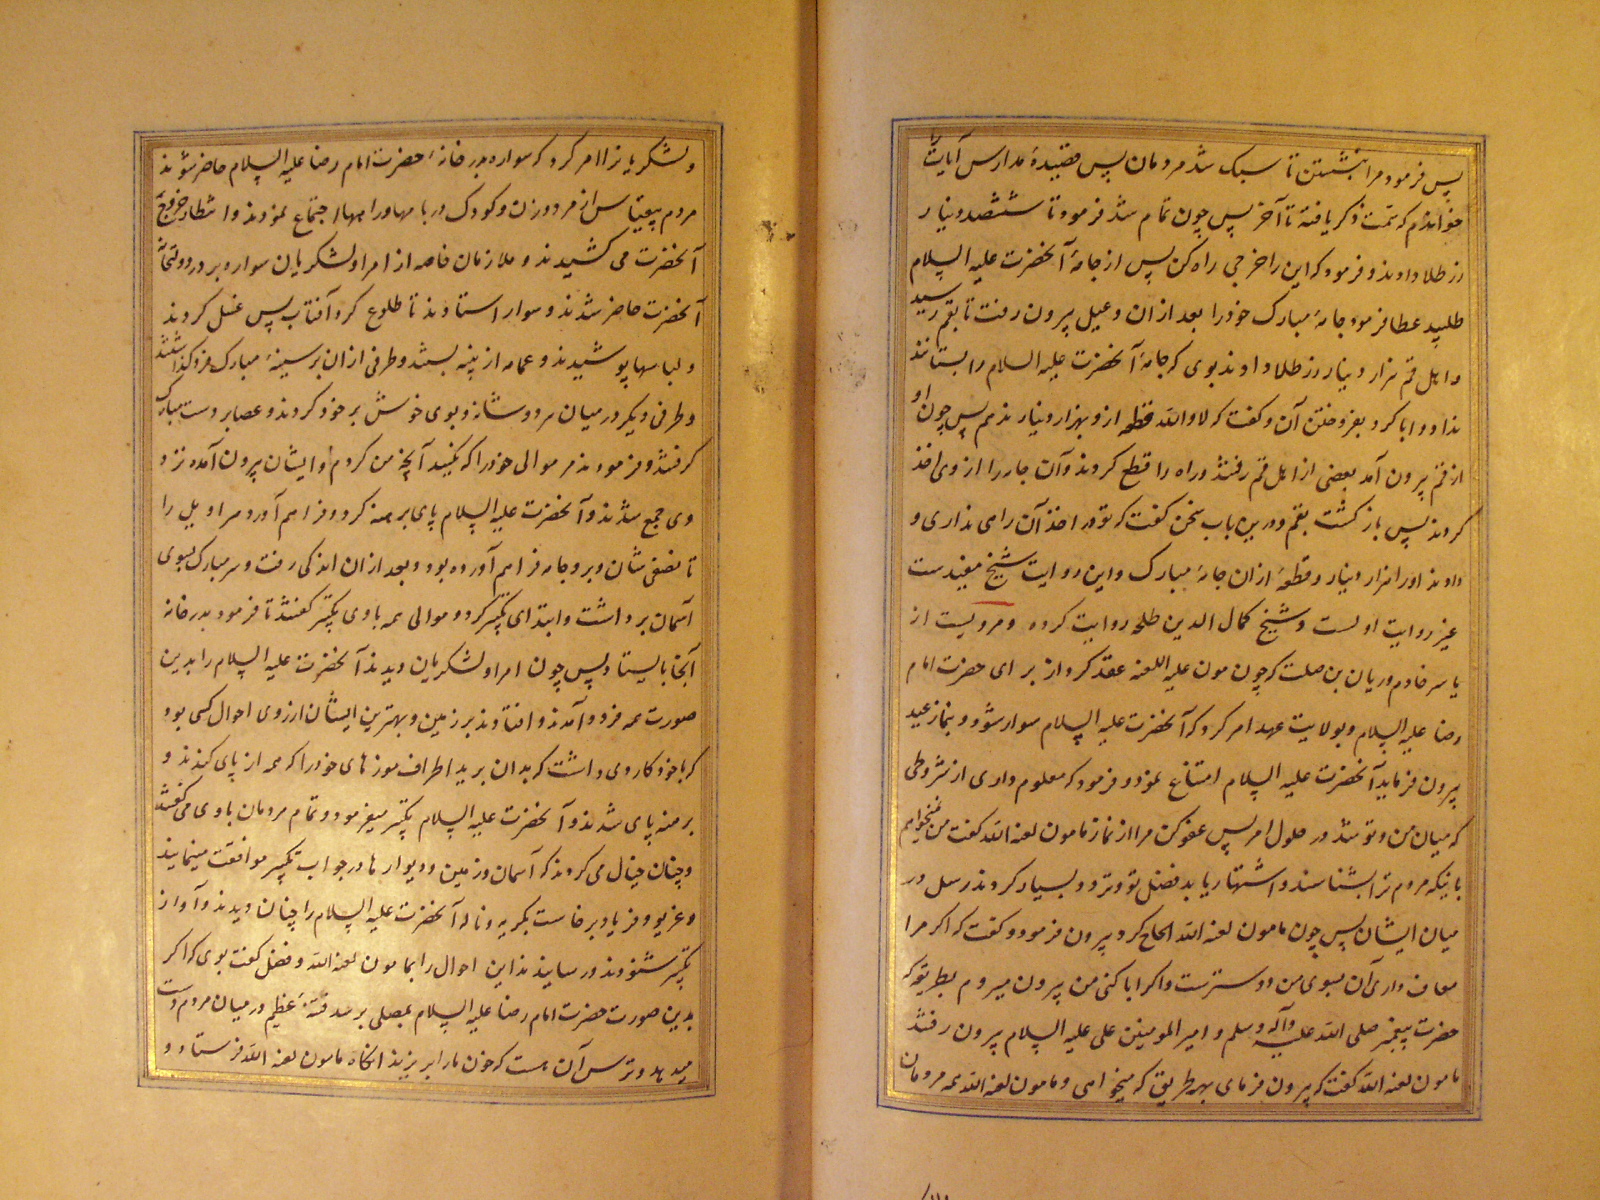 پس فرمود مرا بنشستن تا سبک شد مردمان پس قصیدهٔ مدارس آیات را
خواندم که سمت ذکر یافته تا آخر پس چون تمام شد فرمود تا ششصد دینار
زر طلا دادند و فرمود که این را خرجی راه کن پس از جامهٔ آنحضرت علیه السلام
طلبید عطا فرمود جامهٔ مبارک خود را بعد از ان دعبل بیرون رفت تا بقم رسید
و اهل قم هزار دینار زر طلا دادند بوی که جامهٔ آنحضرت علیه السلام را بستانند
نداد و ابا کرد بفروختن آن و گفت که لا والله قطعه ازو بهزار دینار ندهم پس چون او
از قم بیرون آمد بعضی از اهل قم رفتند و راه را قطع کردند و آن جامه را از وی اخذ
کردند پس بازگشت بقم و درین باب سخن گفت که تو در اخذ آن رامی نداری و
دادند او را هزار دینار و قطعهٔ ازان جامهٔ مبارک و این روایت شیخ مفیدست
غیر روایت اولست و شیخ کمال الدین طلحه روایت کرده و مرویست از
یاسر خادم و ریان بن صلت که چون مون علیه اللعنه عقد کرد از برای حضرت امام
رضا علیه السلام و بولایت عهد امر کرد که آنحضرت علیه السلام سوار شود و بنماز عید
بیرون فرماید آنحضرت علیه السلام امتناع نمود و فرمود که معلوم داری از شروطی
که میان من و تو شد در حلول امر پس عفو کن مرا از نماز مامون لعنه الله گفت من نمیخواهم
باینکه مردم ترا بشناسند و اشتهار یابد فضل تو و تردد بسیار کردند رسل در
میان ایشان پس چون مامون لعنه الله الحاح کرد بیرون فرمود و گفت که اگر مرا
معاف داری آن بسوی من دوسترست و اگر ابا کنی من بیرون میروم بطریق که
حضرت پیغمبر صلی الله علیه وآله وسلم و امیر المومنین علی علیه السلام بیرون رفتند
مامون لعنه الله گفت که بیرون فرمای بهر طریق که میخواهی و مامون لعنه الله همه مردمان
و لشکریانرا امر کرد که سواره بدر خانهٔ حضرت امام رضا علیه السلام حاضر شوند
مردم بیقیاس از مرد و زن و کودک در بامها و راهها اجتماع نمودند و انتظار خروج
آنحضرت می کشیدند و ملازمان خاصه از امرا و لشکریان سواره بر در دولتخانه
آنحضرت حاضر شدند و سوار استادند تا طلوع کرد آفتاب پس غسل کردند
و لباسها پوشیدند و عمامه از پنبه بستند و طرفی ازان بر سینهٔ مبارک فرو گذاشتند
و طرفی دیگر در میان هر دو شانه و بوی خوش بر خود کردند و عصا بر دست مبارک
گرفتند و فرمودند مر موالی خود را که بکنید آنچه من کردم و ایشان بیرون آمده نزد
وی جمع شدند و آنحضرت علیه السلام پای برهنه کرد و فراهم آورد سراویل را
تا نصفی ساق و بر و جامه فراهم آورده بود و بعد ازان اندکی رفت و سر مبارک بسوی
آسمان برداشت و ابتدای تکبیر کرد و موالی همه با وی تکبیر گفتند تا فرمود بدر خانه
آنجا بایستاد پس چون امرا و لشکریان دیدند آنحضرت علیه السلام را بدین
صورت همه فرود آمدند و افتادند بر زمین و بهترین ایشان از روی احوال کسی بود
که با خود کاردی داشت که بدان برید اطراف موزهای خود را که همه از پای کندند و
برهنه پای شدند و آنحضرت علیه السلام تکبیر میفرمود و تمام مردمان با وی می گفتند
و چنان خیال می کردند که آسمان و زمین و دیوارها در جواب تکبیر موافقت مینمایند
و غریو و فریاد برخاست بگریه و ناله آنحضرت علیه السلام را چنان دیدند و آواز
تکبیر شنودند رسانیدند این احوال را بمامون لعنه الله و فضل گفت بوی که اگر
بدین صورت حضرت امام رضا علیه السلام بمصلی برسد فتنهٔ عظیم در میان مردم دست
میدهد و ترس آن هست که خون ما را بریزند انگاه مامون لعنه الله فرستاد و